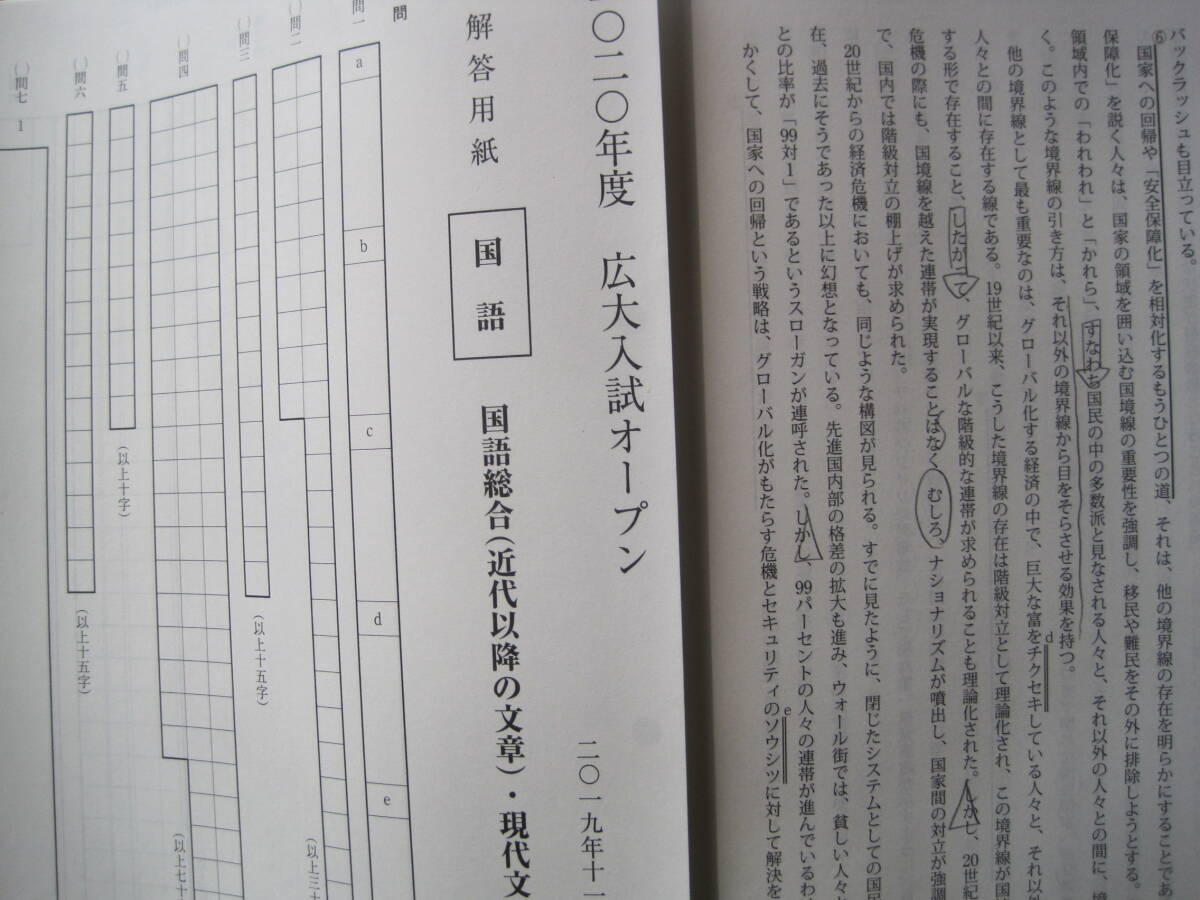 バックラッシュも目立っている。
⑥国家への回帰や「安全保障化」を相対化するもうひとつの道、それは、他の境界線の存在を明らかにすることであ
保障化」を説く人々は、国家の領域を囲い込む国境線の重要性を強調し、移民や難民をその外に排除しようとする。
領域内での「われわれ」と「かれら」、すなわち国民の中の多数派と見なされる人々と、それ以外の人々との間に、境
く。このような境界線の引き方は、それ以外の境界線から目をそらさせる効果を持つ。
他の境界線として最も重要なのは、グローバル化する経済の中で、巨大な富をチクセキしている人々と、それ以外
d
人々との間に存在する線である。19世紀以来、こうした境界線の存在は階級対立として理論化され、この境界線が国境
する形で存在すること、したがって、グローバルな階級的な連帯が求められることも理論化された。しかし、20世紀
危機の際にも、国境線を越えた連帯が実現することはなく、むしろ、ナショナリズムが噴出し、国家間の対立が強調
で、国内では階級対立の棚上げが求められた。
20世紀からの経済危機においても、同じような構図が見られる。すでに見たように、閉じたシステムとしての国民
在、過去にそうであった以上に幻想となっている。先進国内部の格差の拡大も進み、ウォール街では、貧しい人々と
との比率が「99対1」であるというスローガンが連呼された。しかし、99パーセントの人々の連帯が進んでいるわ
かくして、国家への回帰という戦略は、グローバル化がもたらす危機とセキュリティのソウシツに対して解決を
e
二〇一九年十一
〇二〇年度 広大入試オープン
国語総合(近代以降の文章)・現代文
解答用紙
国語
問
問一
a
b
c
d
e
問二
(以上三十
問三
(以上十五字)
問四
(以上七十
問五
(以上十字)
問六
(以上十五字)
問七
1